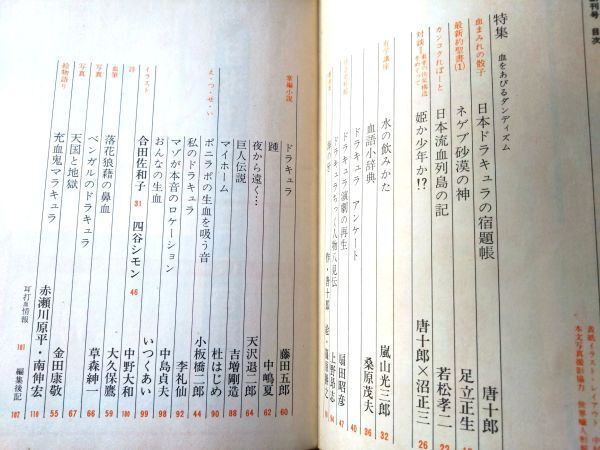 創刊号 目次
特集 血をあびるダンディズム
血まみれの骰子
日本ドラキュラの宿題帳 唐十郎
最新約聖書(1)
ネゲブ砂漠の神 足立正生
カンコクれぽーと
日本流血列島の記 若松孝二 22
対談
姫か少年か!? 唐十郎×沼正三 26
育子講座
水の飲みかた 嵐山光三郎 32
血語小辞典 桑原茂夫 36
ドラキュラ アンケート 40
ドラキュラ演劇の再生 扇田昭彦 47
ドラキュラちっく人物八見伝 上野昻志 64
作・唐十郎 絵
掌編小説
ドラキュラ 藤田五郎 60
踵 中嶋夏 62
夜から遠く… 天沢退二郎 64
巨人伝説 吉増剛造 88
マイホーム 杜はじめ 90
え・っ・せ・い
ポニラポの生血を吸う音 小板橋二郎 44
私のドラキュラ 李礼仙 92
マゾが本音のロケーション 中島貞夫 98
おんなの生血 いつくあい 99
イラスト
合田佐和子 31 四谷シモン 46
詩
中野大和 104
血筆
落花狼藉の鼻血 大久保鷹 59
写真
ベンガルのドラキュラ 草森紳一 66
写真
天国と地獄 金田康敬 67
絵物語り
充血鬼マラキュラ 赤瀬川原平・南伸宏 55
耳打血情報 101
110
編集後記 102
表紙イラスト・レイアウト
本文写真撮影協力